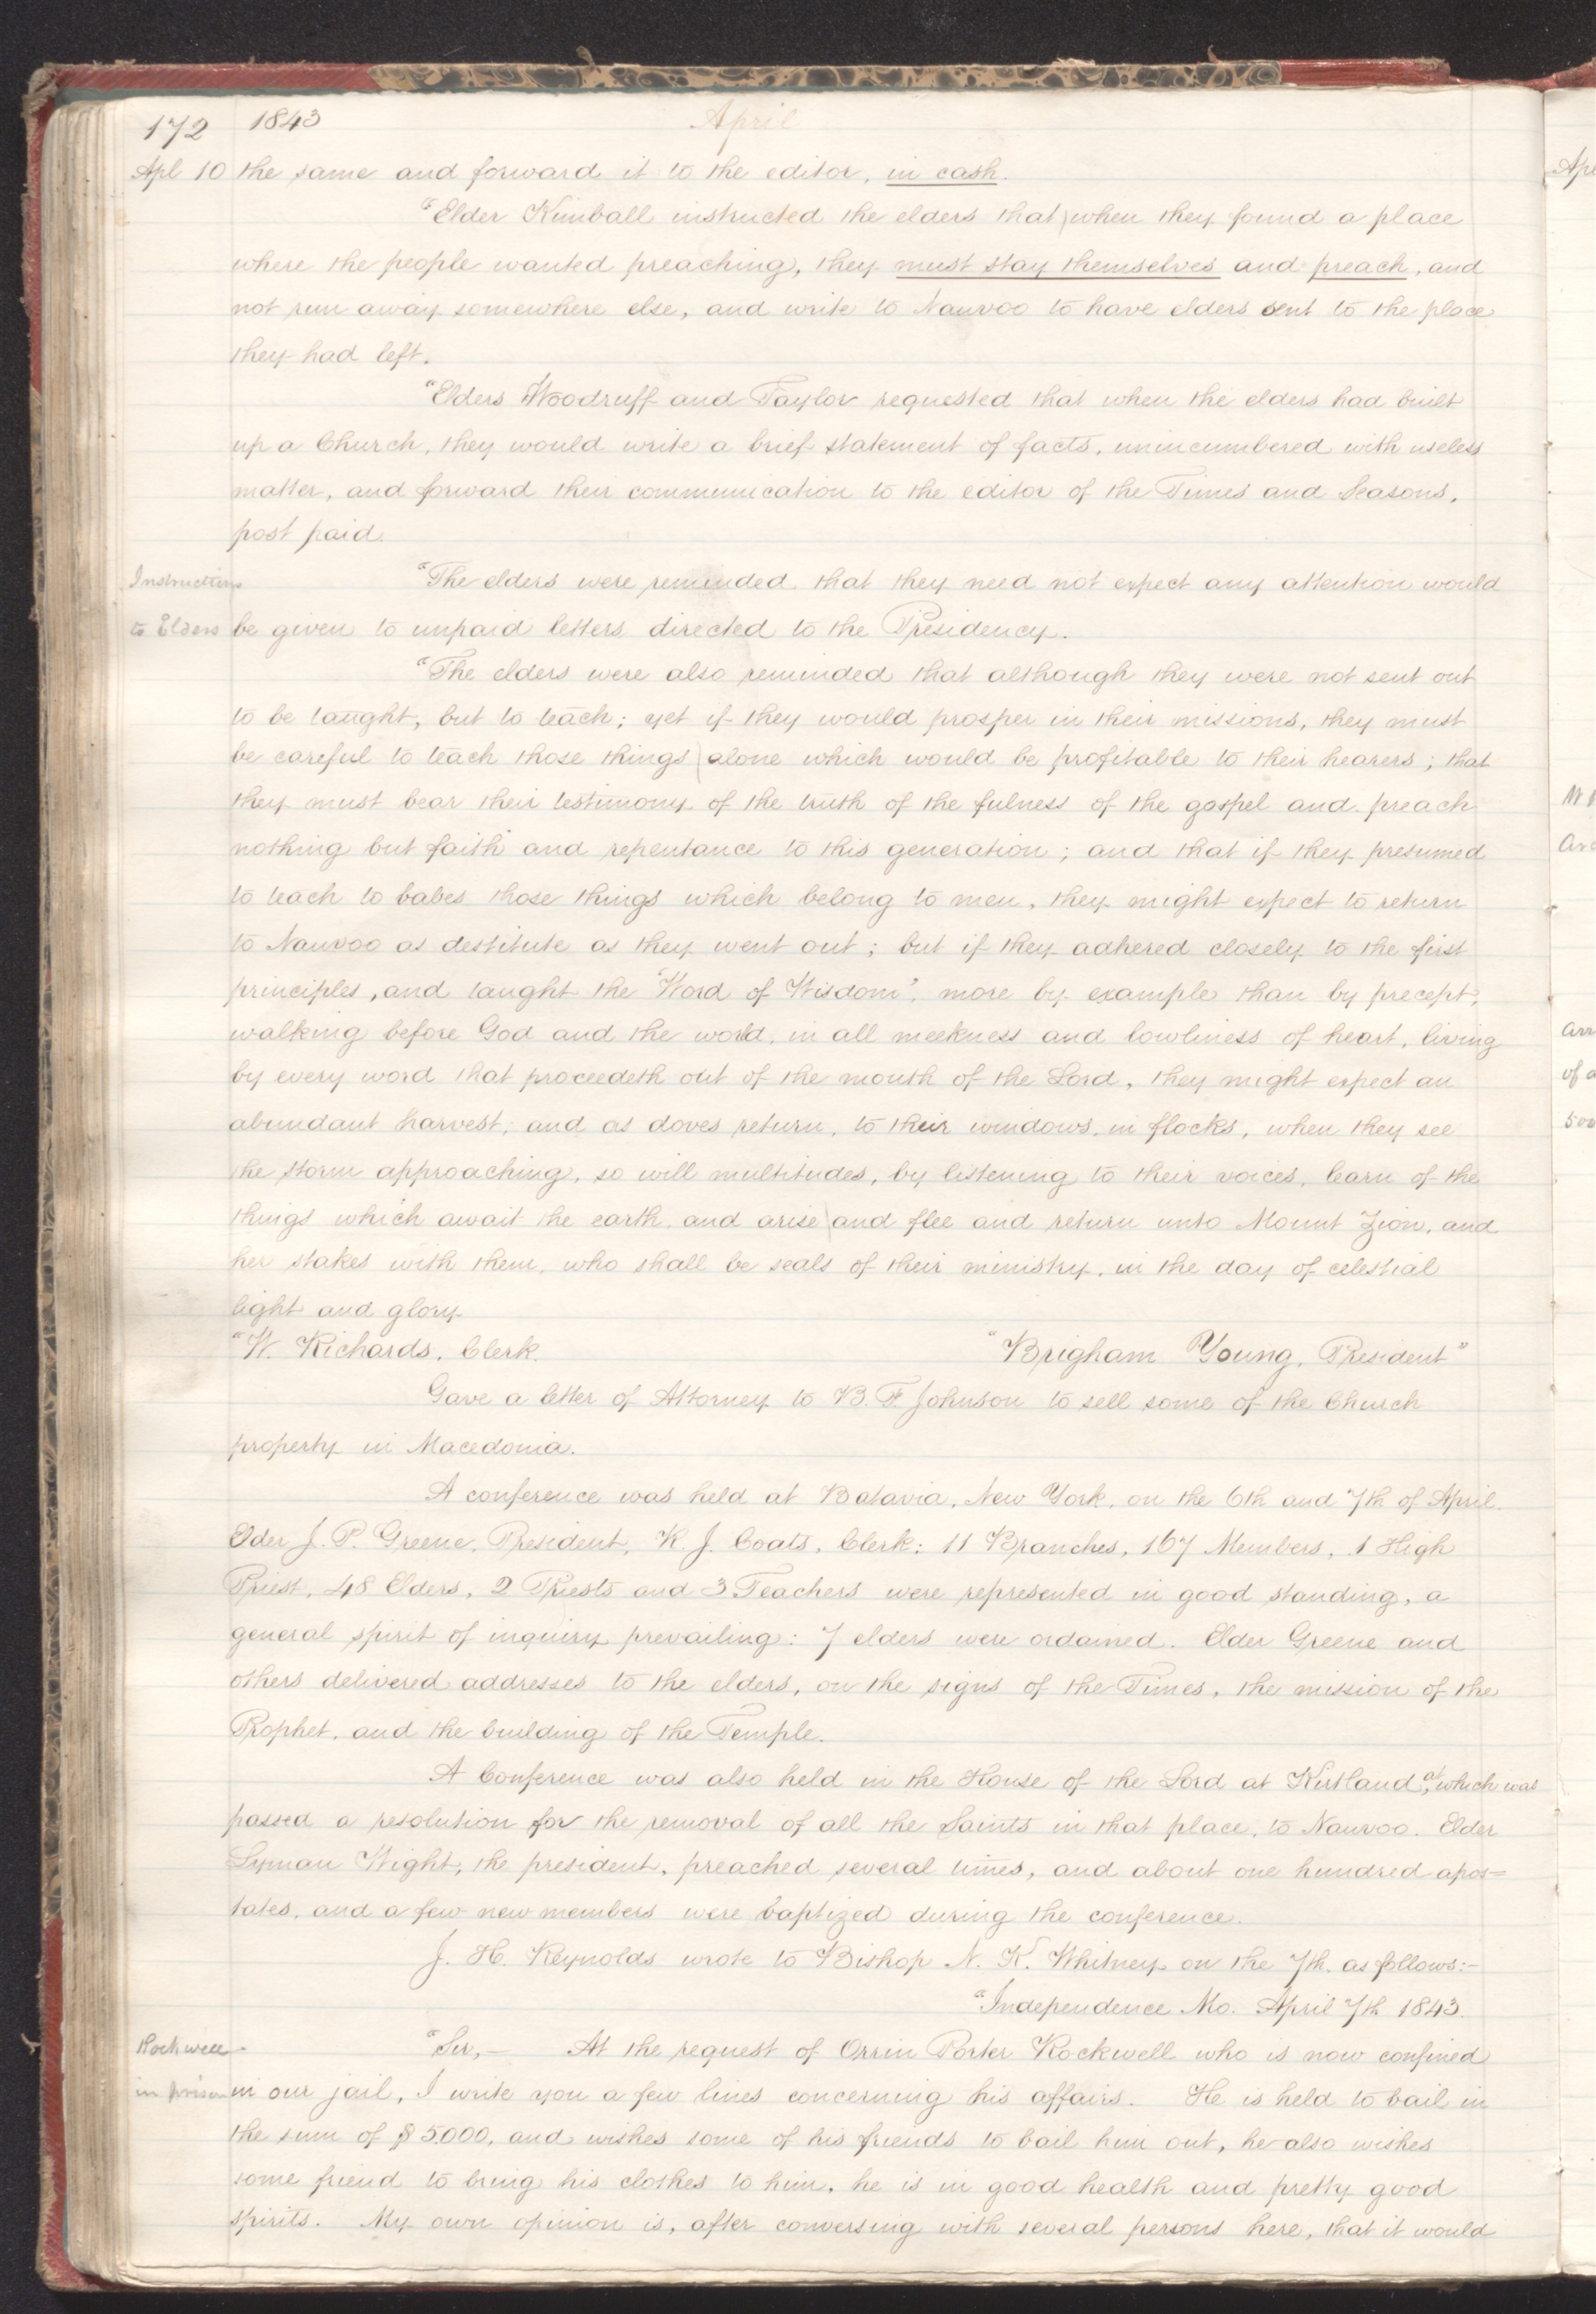 172 1843 April
Apl 10 the same and forward it to the editor, in cash.
"Elder Kimball instructed the elders that when they found a place
where the people wanted preaching, they must stay themselves and preach, and
not run away somewhere else, and write to Nauvoo to have elders sent to the place
they had left.
"Elders Woodruff and Taylor requested that when the elders had built
up a Church, they would write a brief statement of facts, unincumbered with useless
matter, and forward their communication to the editor of the Times and Seasons,
post paid.
Instructions "The elders were reminded that they need not expect any attention would
to Elders be given to unpaid letters directed to the Presidency.
"The elders were also reminded that although they were not sent out
to be taught, but to teach; yet if they would prosper in their missions, they must
be careful to teach those things alone which would be profitable to their hearers; that
they must bear their testimony of the truth of the fulness of the gospel and preach
nothing but faith and repentance to this generation; and that if they presumed
to teach to babes those things which belong to men, they might expect to return
to Nauvoo as destitute as they went out; but if they adhered closely to the first
principles, and taught the "Word of Wisdom", more by example than by precept,
walking before God and the world, in all meekness and lowliness of heart, living
by every word that proceedeth out of the mouth of the Lord, they might expect an
abundant harvest, and as doves return, to their windows, in flocks, when they see
the storm approaching, so will multitudes, by listening to their voices, learn of the
things which await the earth, and arise and flee and return unto Mount Zion, and
her stakes with them, who shall be seals of their ministry, in the day of celestial
light and glory.
"W. Richards, Clerk. "Brigham Young, President"
Gave a letter of Attorney to B. F. Johnson to sell some of the Church
property in Macedonia.
A conference was held at Batavia, New York, on the 6th and 7th of April.
Elder J. P. Greene, President, K. J. Coats, Clerk; 11 Branches, 167 Members, 1 High
Priest, 48 Elders, 2 Priests and 3 Teachers were represented in good standing, a
general spirit of inquiry prevailing: 7 elders were ordained. Elder Greene and
others delivered addresses to the elders, on the signs of the Times, the mission of the
Prophet, and the building of the Temple.
A Conference was also held in the House of the Lord at Kirtland, at which was
passed a resolution for the removal of all the Saints in that place, to Nauvoo. Elder
Lyman Wight, the president, preached several times, and about one hundred apos=
tates, and a few new members were baptized during the conference.
J. H. Reynolds wrote to Bishop N. K. Whitney on the 7th. as follows:-
"Independence Mo. April 7th 1843.
Rockwell "Sir,— At the request of Orrin Porter Rockwell who is now confined
in prison in our jail, I write you a few lines concerning his affairs. He is held to bail in
the sum of $5000, and wishes some of his friends to bail him out, he also wishes
some friend to bring his clothes to him, he is in good health and pretty good
spirits. My own opinion is, after conversing with several persons here, that it would